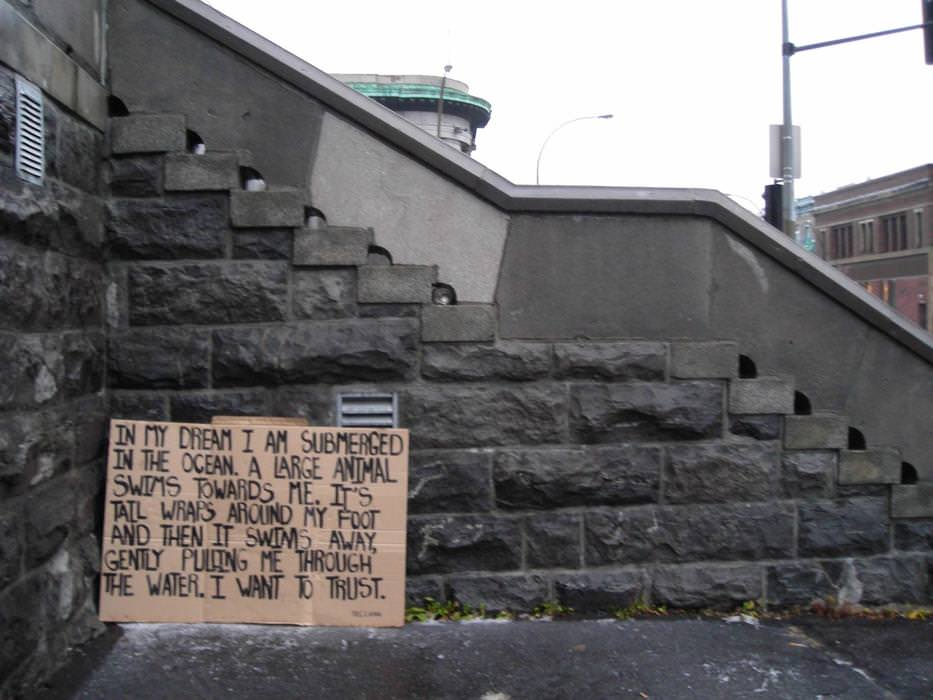 IN MY DREAM I AM SUBMERGED
IN THE OCEAN. A LARGE ANIMAL
SWIMS TOWARDS ME. IT'S
TAIL WRAPS AROUND MY FOOT
AND THEN IT SWIMS AWAY,
GENTLY PULLING ME THROUGH
THE WATER. I WANT TO TRUST.